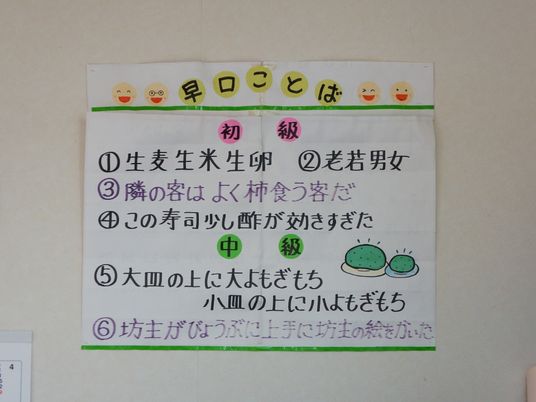 早口ことば
初級
①生麦生米生卵 ②老若男女
③隣の客はよく柿食う客だ
④この寿司少し酢が効きすぎた
中級
⑤大皿の上に大よもぎもち
小皿の上に小よもぎもち
⑥坊主がびょうぶに上手に坊主の絵をかいた
4